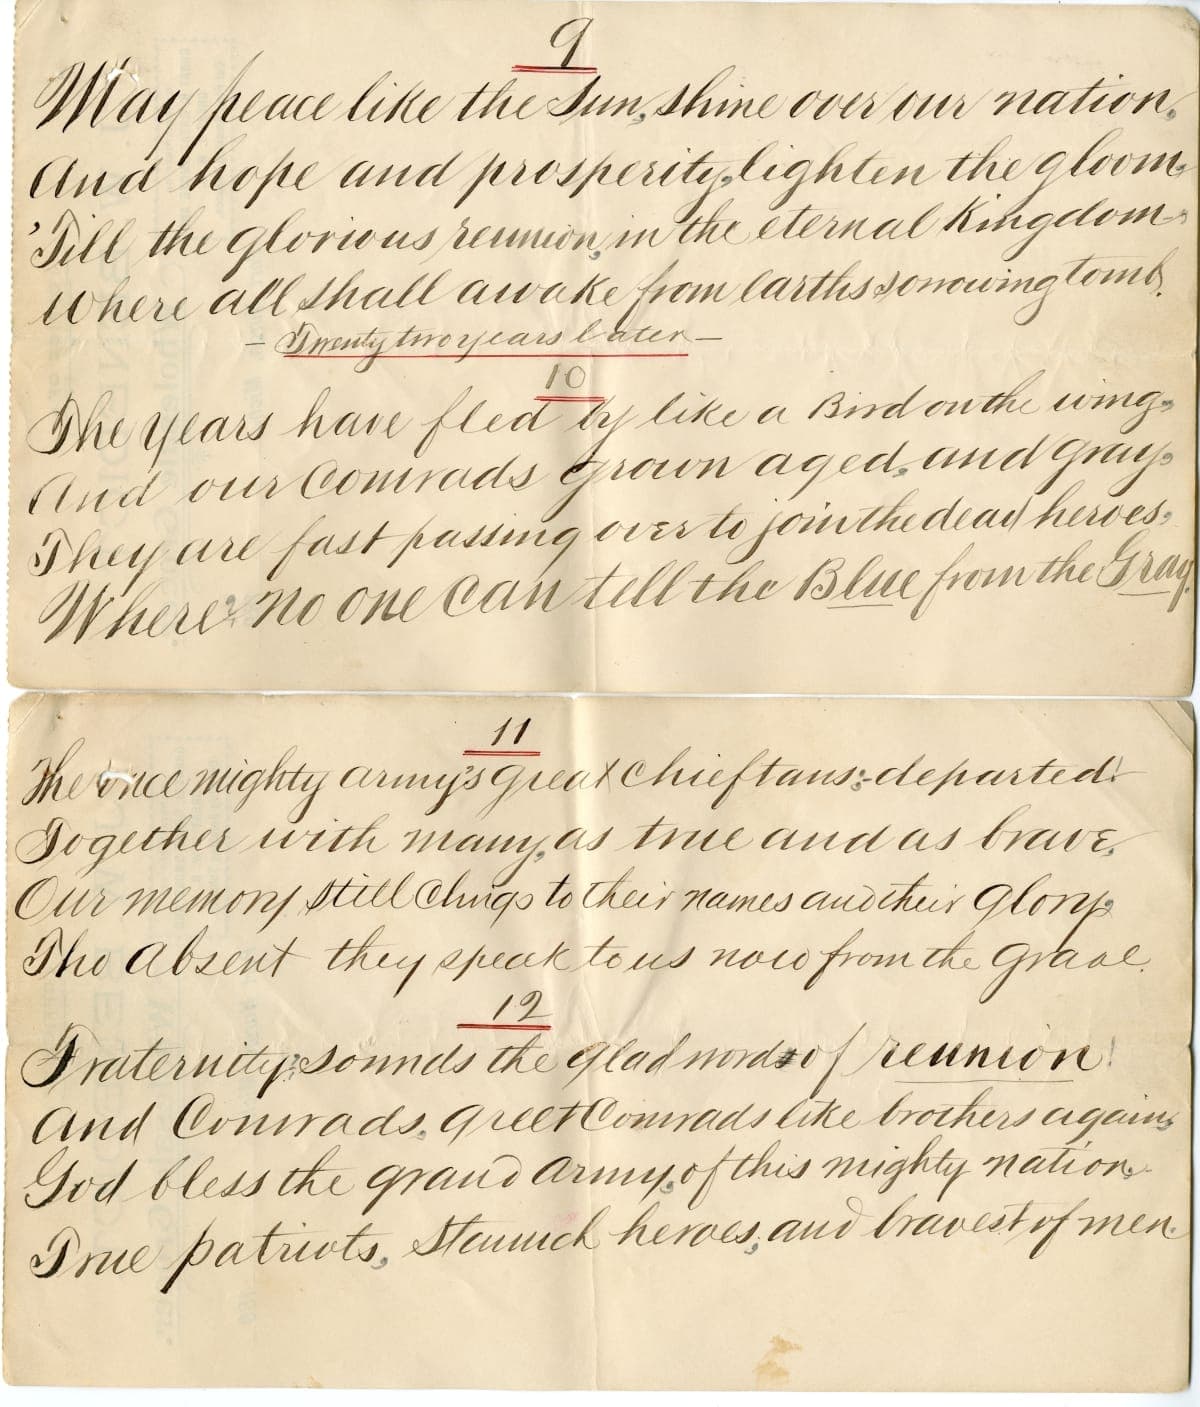 9
May peace like the Sun, shine over our nation,
And hope and prosperity, lighten the gloom,
'Till the glorious reunion, in the eternal Kingdom,
Where all shall awake from Earths sorrowing tomb.
– Twenty two years later –
10
The years have fled by like a Bird on the wing,
And our Comrads grown aged, and gray,
They are fast passing over to join the dead heroes,
Where no one can tell the Blue from the Gray.
11
The once mighty army's great Chieftans:-departed!
Together with many, as true and as brave,
Our memory still Clings to their names and their Glory,
Tho absent they speak to us now from the Grave.
12
Fraternity; sounds the glad words of reunion!
And Comrads, greet Comrads like brothers again,
God bless the grand army, of this mighty nation,
True patriots, Staunch heroes, and bravest of men.